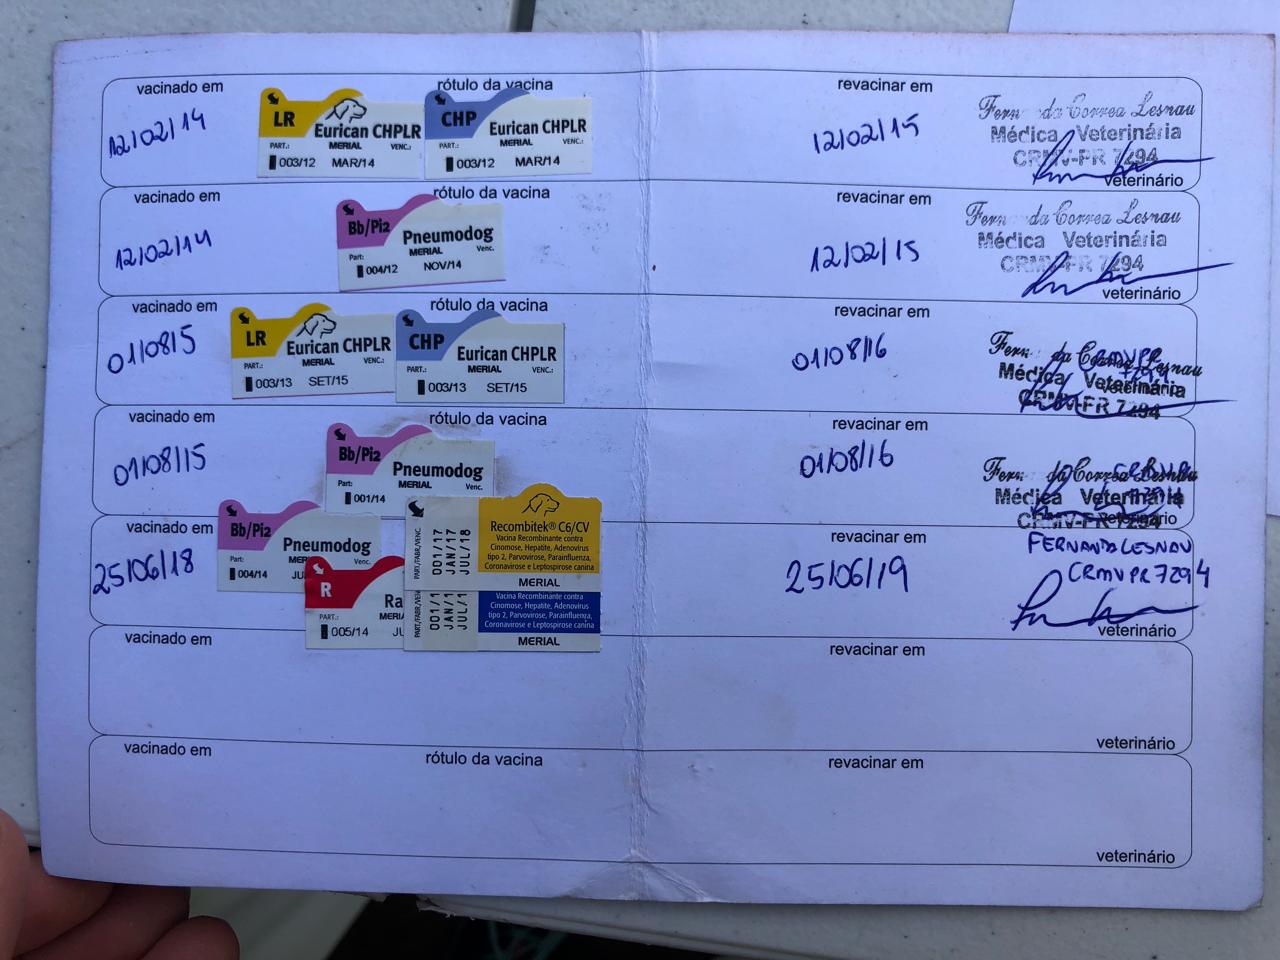 vacinado em rótulo da vacina revacinar em
12/02/14
LR
Eurican CHPLR
PART.: MERIAL VENC.:
003/12 MAR/14
CHP
Eurican CHPLR
PART.: MERIAL VENC.:
003/12 MAR/14
12/02/15
Fernanda Correa Lesnau
Médica Veterinária
CRMV-PR 7294
veterinário
vacinado em rótulo da vacina revacinar em
12/02/14
Bb/Pi2
Pneumodog
MERIAL
Part: Venc.
004/12 NOV/14
12/02/15
Fernanda Correa Lesnau
Médica Veterinária
CRMV-PR 7294
veterinário
vacinado em rótulo da vacina revacinar em
01/0815
LR
Eurican CHPLR
PART.: MERIAL VENC.:
003/13 SET/15
CHP
Eurican CHPLR
PART.: MERIAL VENC.:
003/13 SET/15
01/08/16
Fern da Correa Lesnau
CRMVPR
7294
Médica Veterinária
veterinário
CRMV-PR 7294
vacinado em rótulo da vacina revacinar em
01/08/15
Bb/Pi2
Pneumodog
Part: Venc.
001/14
01/08/16
Fern da Correa Lesnau
Médica Veterinária
CRMV-PR 7294
veterinário
vacinado em revacinar em
25/06/18
Bb/Pi2
Pneumodog
Part: MER
004/14 JU
R
Ra
PART.: MERIA
005/14 JU
PART/FABR/VENC.
001/17
JAN/17
JUL/18
Recombitek® C6/CV
Vacina Recombinante contra
Cinomose, Hepatite, Adenovirus
tipo 2, Parvovirose, Parainfluenza,
Coronavirose e Leptospirose canina
MERIAL
PART/FABR/VEN
001/1
JAN/1
JUL/1
Vacina Recombinante contra
Cinomose, Hepatite, Adenovirus
tipo 2, Parvovirose, Parainfluenza,
Coronavirose e Leptospirose canina
MERIAL
25/06/19
FERNANDA LESNAU
CRMVPR 7294
veterinário
vacinado em revacinar em
veterinário
vacinado em rótulo da vacina revacinar em
veterinário